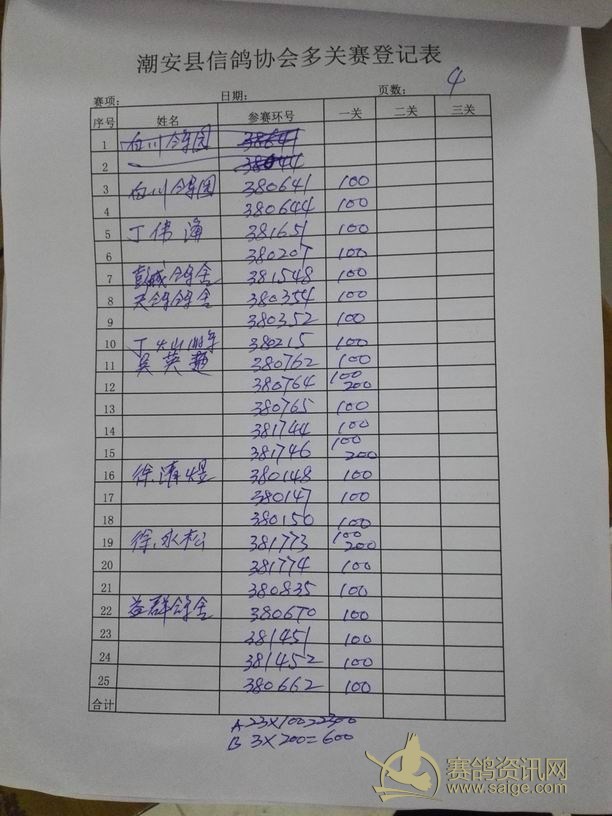 潮安县信鸽协会多关赛登记表
赛项: 日期: 页数: 4
序号 姓名 参赛环号 一关 二关 三关
1 白川鸽园 38641
2 38044
3 白川鸽园 380641 100
4 380644 100
5 丁伟 381651 100
6 380207 100
7 彭城鸽舍 381548 100
8 天锦鸽舍 380354 100
9 380352 100
10 丁 380215 100
11 吴英 380762 100
12 380764 100 200
13 380765 100
14 381744 100
15 381746 100 200
16 徐清煜 380148 100
17 380147 100
18 380150 100
19 徐永松 381773 100 200
20 381774 100
21 380835 100
22 益群鸽舍 380670 100
23 381451 100
24 381452 100
25 380662 100
合计
A 23×100=2300
B 3×200=600
赛鸽资讯网
www.saige.com